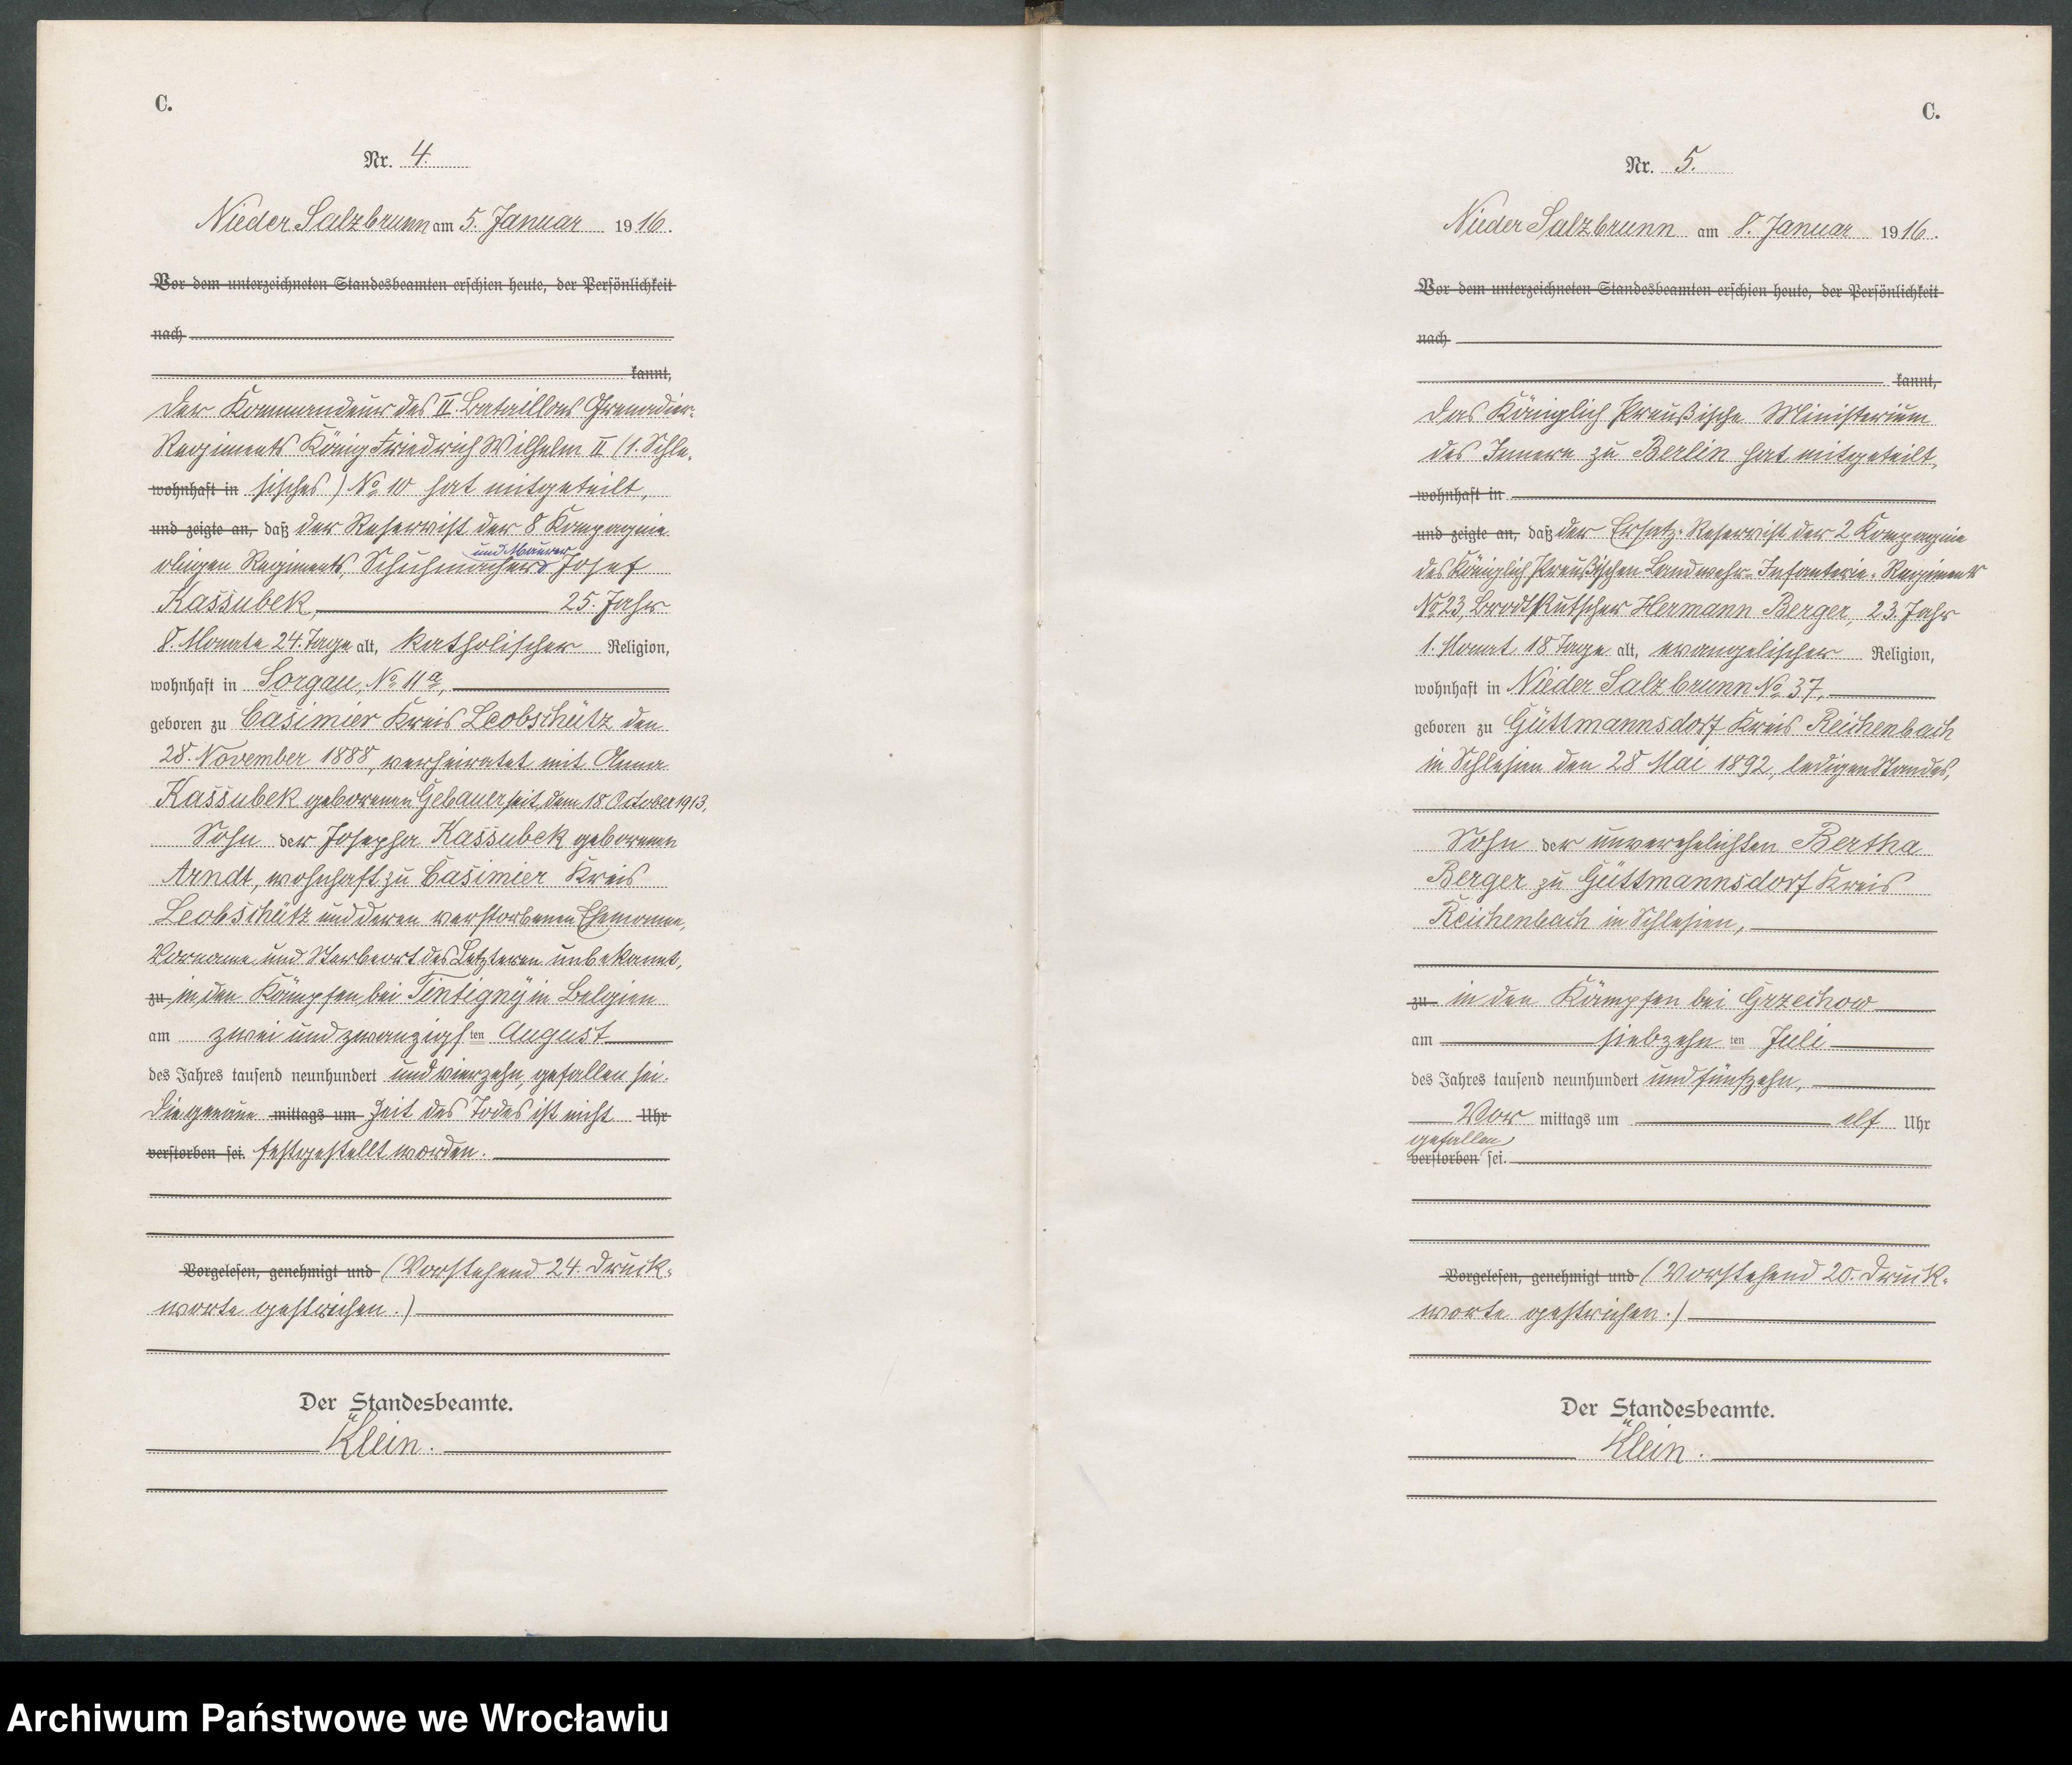 C.
Nr. 4.
Nieder Salzbrunn am 5. Januar 1916.
Vor dem unterzeichneten Standesbeamten erschien heute, der Persönlichkeit
nach
kannt,
Der Kommandeur des II. Bataillons Grenadier-
Regiments König Friedrich Wilhelm II (1. Schle-
wohnhaft in sisches) No 10 hat mitgeteilt,
und zeigte an, daß der Reservist der 8 Kompagnie
und Maurer
obigen Regiments, Schuhmacher Josef
Kassubek, 25. Jahr
8. Monate 24. Tage alt, katholischer Religion,
wohnhaft in Sorgau, No 11a,
geboren zu Casimier Kreis Leobschütz den
28. November 1888, verheiratet mit Anna
Kassubek geborenen Gebauer seit dem 18 October 1913,
Sohn der Josepha Kassubek geborenen
Arndt, wohnhaft zu Casimier Kreis
Leobschütz und deren verstorbenen Ehemanne,
Vorname und Sterbeort des Letzteren unbekannt,
zu in den Kämpfen bei Tintigny in Belgien
am zwei und zwanzigsten August
des Jahres tausend neunhundert und vierzehn, gefallen sei.
Die genaue mittags um Zeit des Todes ist nicht Uhr
verstorben sei. festgestellt worden.
Vorgelesen, genehmigt und (Vorstehend 24. Druck-
worte gestrichen.)
Der Standesbeamte.
Klein.
C.
Nr. 5.
Nieder Salzbrunn am 8. Januar 1916.
Vor dem unterzeichneten Standesbeamten erschien heute, der Persönlichkeit
nach
kannt,
Das Königlich Preußische Ministerium
des Innern zu Berlin hat mitgeteilt,
wohnhaft in
und zeigte an, daß der Ersatz-Reservist der 2 Kompagnie
des Königlich Preußischen Landwehr-Infanterie-Regiments
No 23, Brodtkutscher Hermann Berger, 23. Jahr
1. Monat 18 Tage alt, evangelischer Religion,
wohnhaft in Nieder Salzbrunn No 37,
geboren zu Güttmannsdorf Kreis Reichenbach
in Schlesien den 28 Mai 1892, ledigen Standes,
Sohn der unverehelichten Bertha
Berger zu Güttmannsdorf Kreis
Reichenbach in Schlesien,
zu in den Kämpfen bei Grzechow
am siebzehn ten Juli
des Jahres tausend neunhundert und fünfzehn,
Vor mittags um elf Uhr
gefallen
verstorben sei.
Vorgelesen, genehmigt und (Vorstehend 20. Druck-
worte gestrichen.)
Der Standesbeamte.
Klein.
Archiwum Państwowe we Wrocławiu